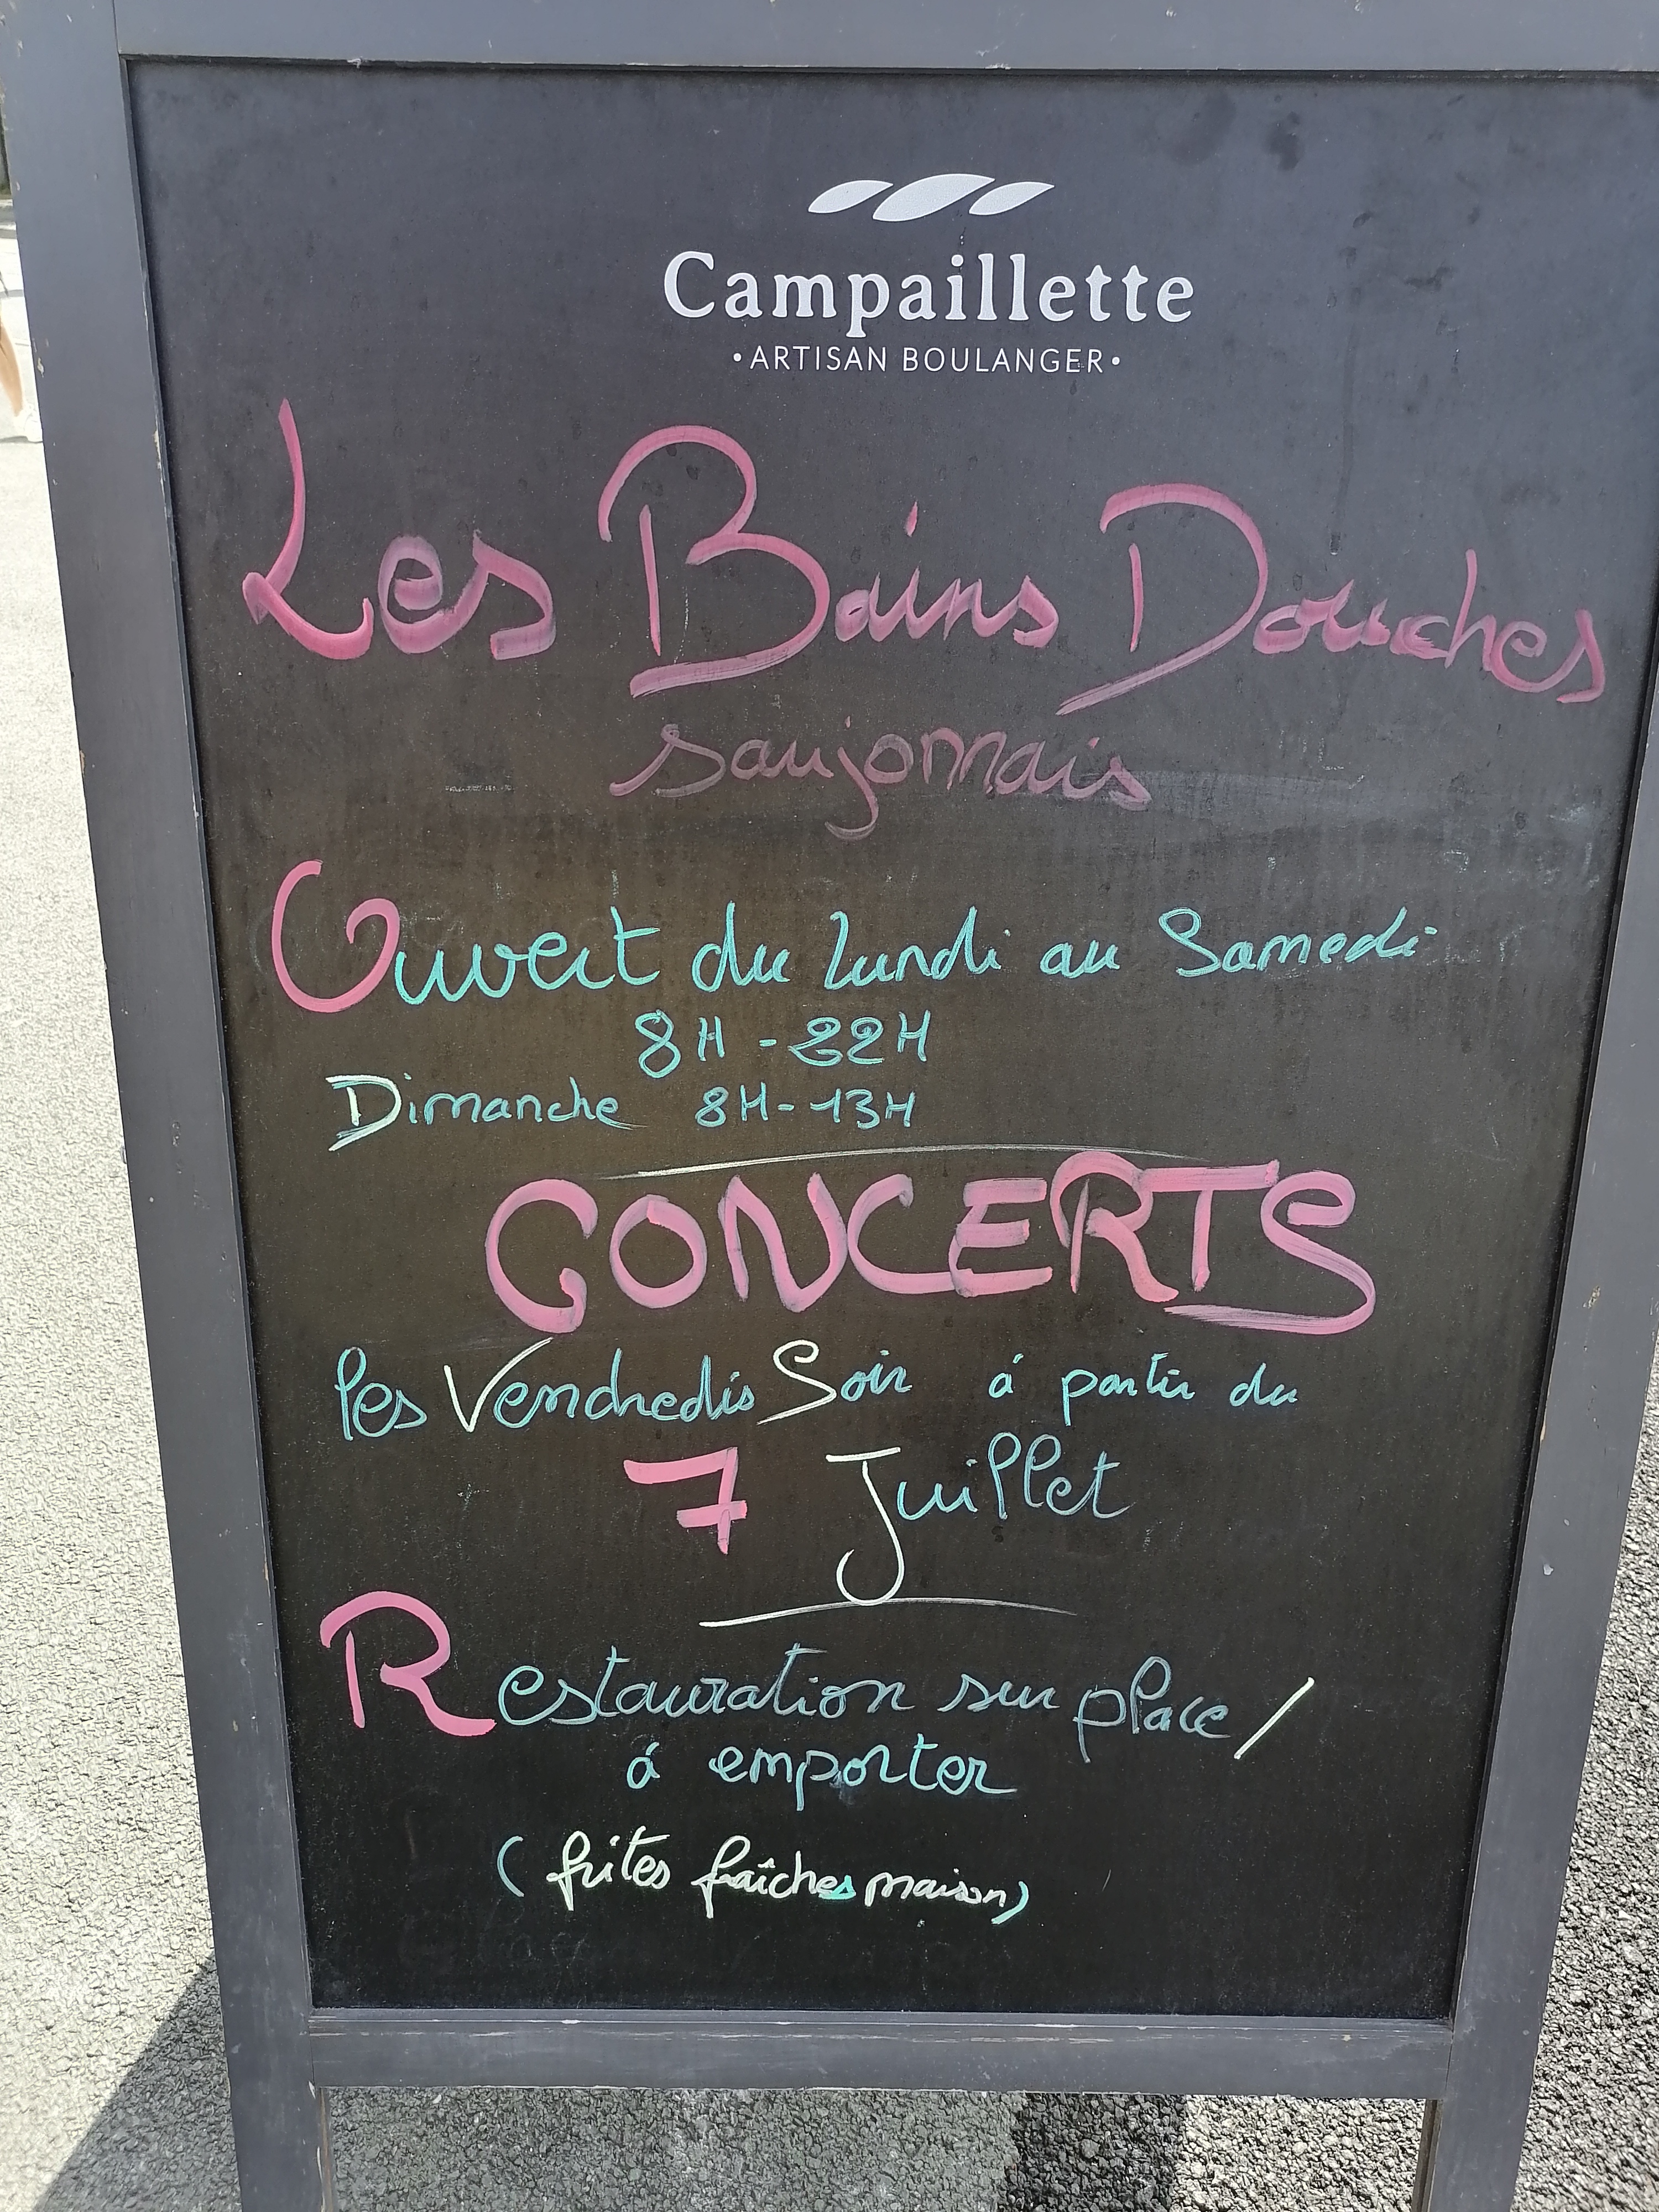 Campaillette
• ARTISAN BOULANGER •
Les Bains Douches
saujonnais
Ouvert du lundi au Samedi
8H - 22H
Dimanche 8H - 13H
CONCERTS
les Vendredis Soir á partir du
7 Juillet
Restauration sur place /
á emporter
( frites fraîches maison)